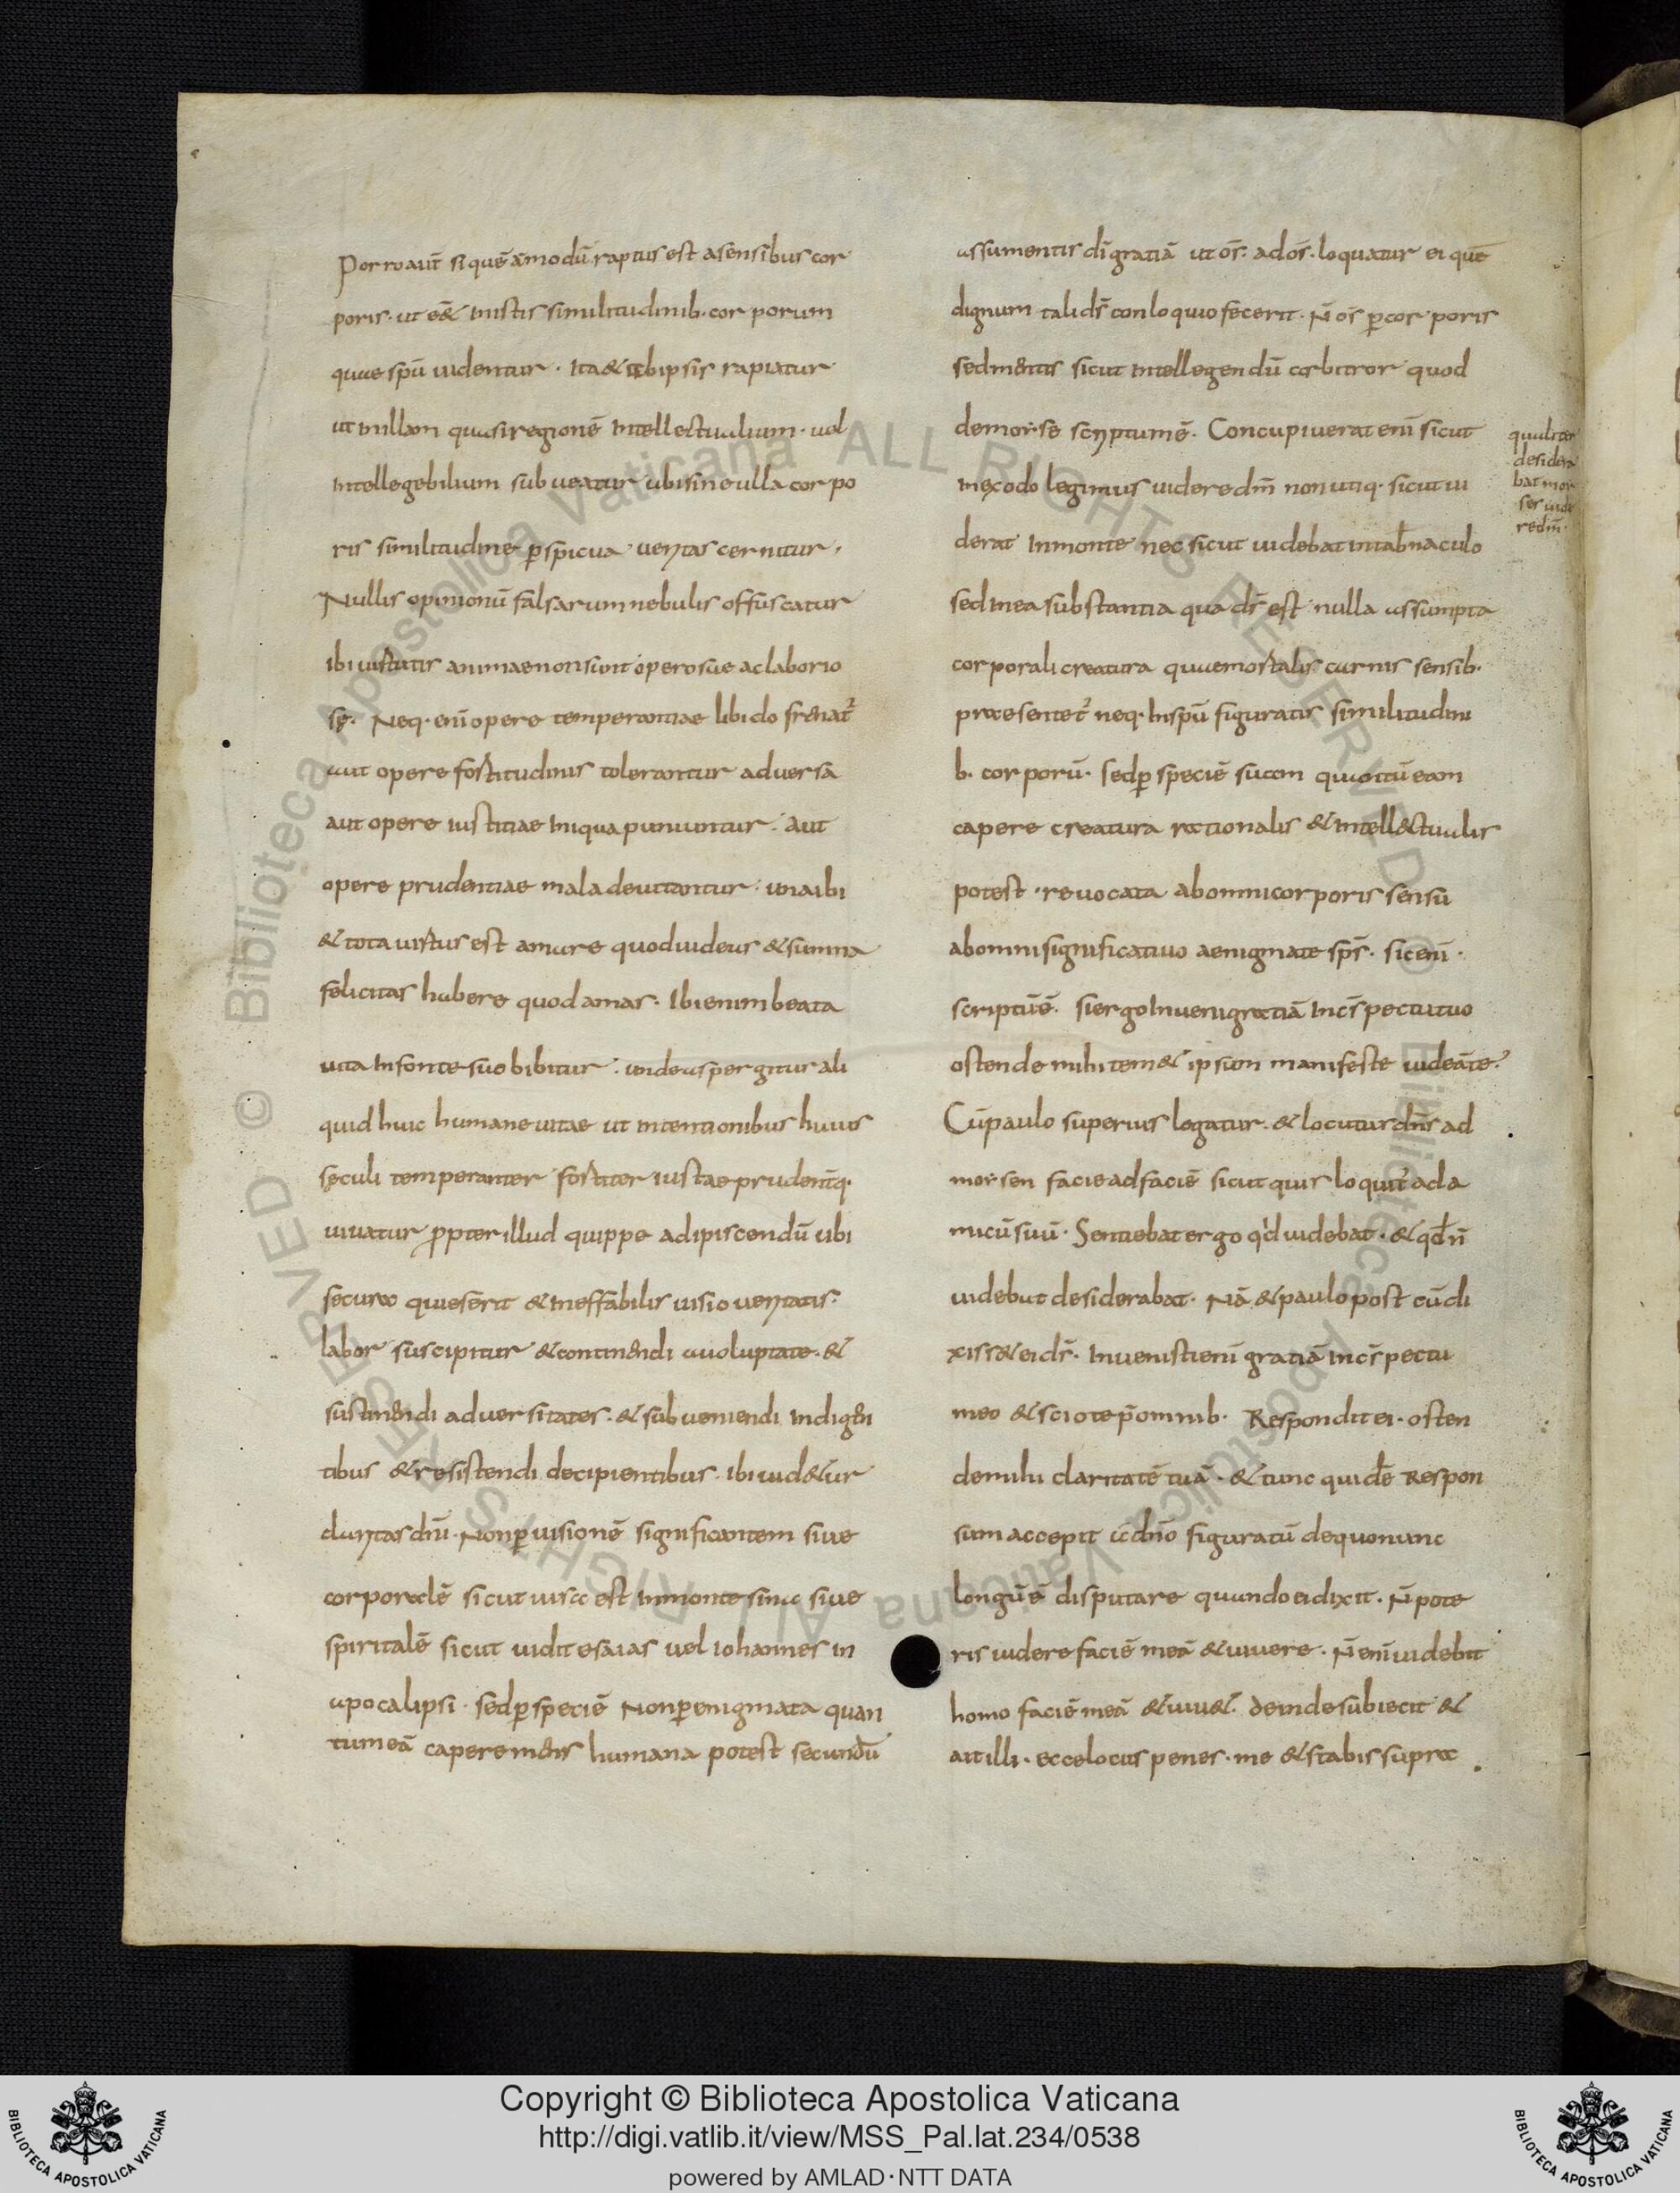 Porro aut̄ si quē āmodū raptus est a sensibus cor
poris· ut e&̄ in istis similitudinib· corporum
quae sp̄u uidentur · ita & ab ipsis rapiatur
ut in illam quasi regionē intellectualium · uel
intellegebilium subueatur ubi sine ulla corpo
ris similitudine p̱spicua ueritas cernitur ·
Nullis opinionū falsarum nebulis offuscatur
ibi uirtutis animae non sunt operosae ac laborio
sę· Neq· enī opere temperantiae libido frenat᷑
aut opere fortitudinis tolerantur aduersa
aut opere iustitiae iniqua puniuntur · aut
opere prudentiae mala deuitantur · una ibi
& tota uirtus est amare quod uideas & summa
felicitas habere quod amas· Ibi enim beata
uita in fonte suo bibitur · inde aspergitur ali
quid huic humane uitae ut in tentionibus huius
sęculi temperanter fortiter iustae prudent̄q·
uiuatur propter illud quippe adipiscendū ubi
secura quies erit & ineffabilis uisio ueritatis·
labor suscipitur & continendi a uoluptate · &
sustinendi aduersitates · & subueniendi indigen
tibus & resistendi decipientibus · ibi uid&ur
claritas dn̄i · Non p̱ uisionē significantem siue
corporalē sicut uisa est in monte sina siue
spiritalē sicut uidit esaias uel iohannes in
apocalipsi · sed p̱ speciē Non p̱ enigmata quan
tum eā capere mens humana potest secundū
assumentis dī gratiā ut os̄· ad os̄· loquatur ei quē
dignum tali ds̄ conloquio fecerit · N̄ os̄ p̱ corporis
sed mentis sicut intellegendū arbitror quod
de morse scriptum ē· Concupiuerat enī sicut
in exodo legimus uidere dm̄ non utiq· sicut ui
derat in monte nec sicut uidebat in tab̄naculo
sed in ea substantia qua ds̄ est nulla assumpta
corporali creatura quae mortalis carnis sensib·
praesentet᷑ neq· in sp̄u figuratis similitudini
b· corporū· sed p̱ speciē suam quantū eam
capere creatura rationalis & intell&tualis
potest · reuocata ab omni corporis sensu
ab omni significatiuo aenigmate sps̄ · sic enī ·
scriptū ē· si ergo inueni gratiā in cs̄pectu tuo
ostende mihi tem& ipsum manifeste uideā te·
Cū paulo superius legatur · & locutus dn̄s ad
morsen facie ad faciē sicut quis loquit᷑ ad a
micū suū · Sentiebat ergo qd̄ uidebat · & qd̄ n̄
uidebat desiderabat · Nā & paulo post cū di
xiss& ei ds̄ · Inuenisti enī gratiā in cs̄pectu
meo & scio te p̄ omnib· Respondit ei · osten
de mihi claritatē tuā · & tunc quidē Respon
sum accepit a dn̄o figuratū de quo nunc
longū ē disputare quando ei dixit · N̄ pote
ris uidere faciē meā & uiuere · N̄ enī uidebit
homo faciē meā & uiu& · deinde subiecit &
ait illi · ecce locus penes · me & stabis supra
qualiter
desidera
bat mor
ses uide
re dm̄·
© Biblioteca Apostolica Vaticana ALL RIGHTS RESERVED © Biblioteca Apostolica Vaticana ALL RIGHTS RESERVED
Copyright © Biblioteca Apostolica Vaticana
http://digi.vatlib.it/view/MSS_Pal.lat.234/0538
powered by AMLAD·NTT DATA
BIBLIOTECA APOSTOLICA VATICANA
BIBLIOTECA APOSTOLICA VATICANA